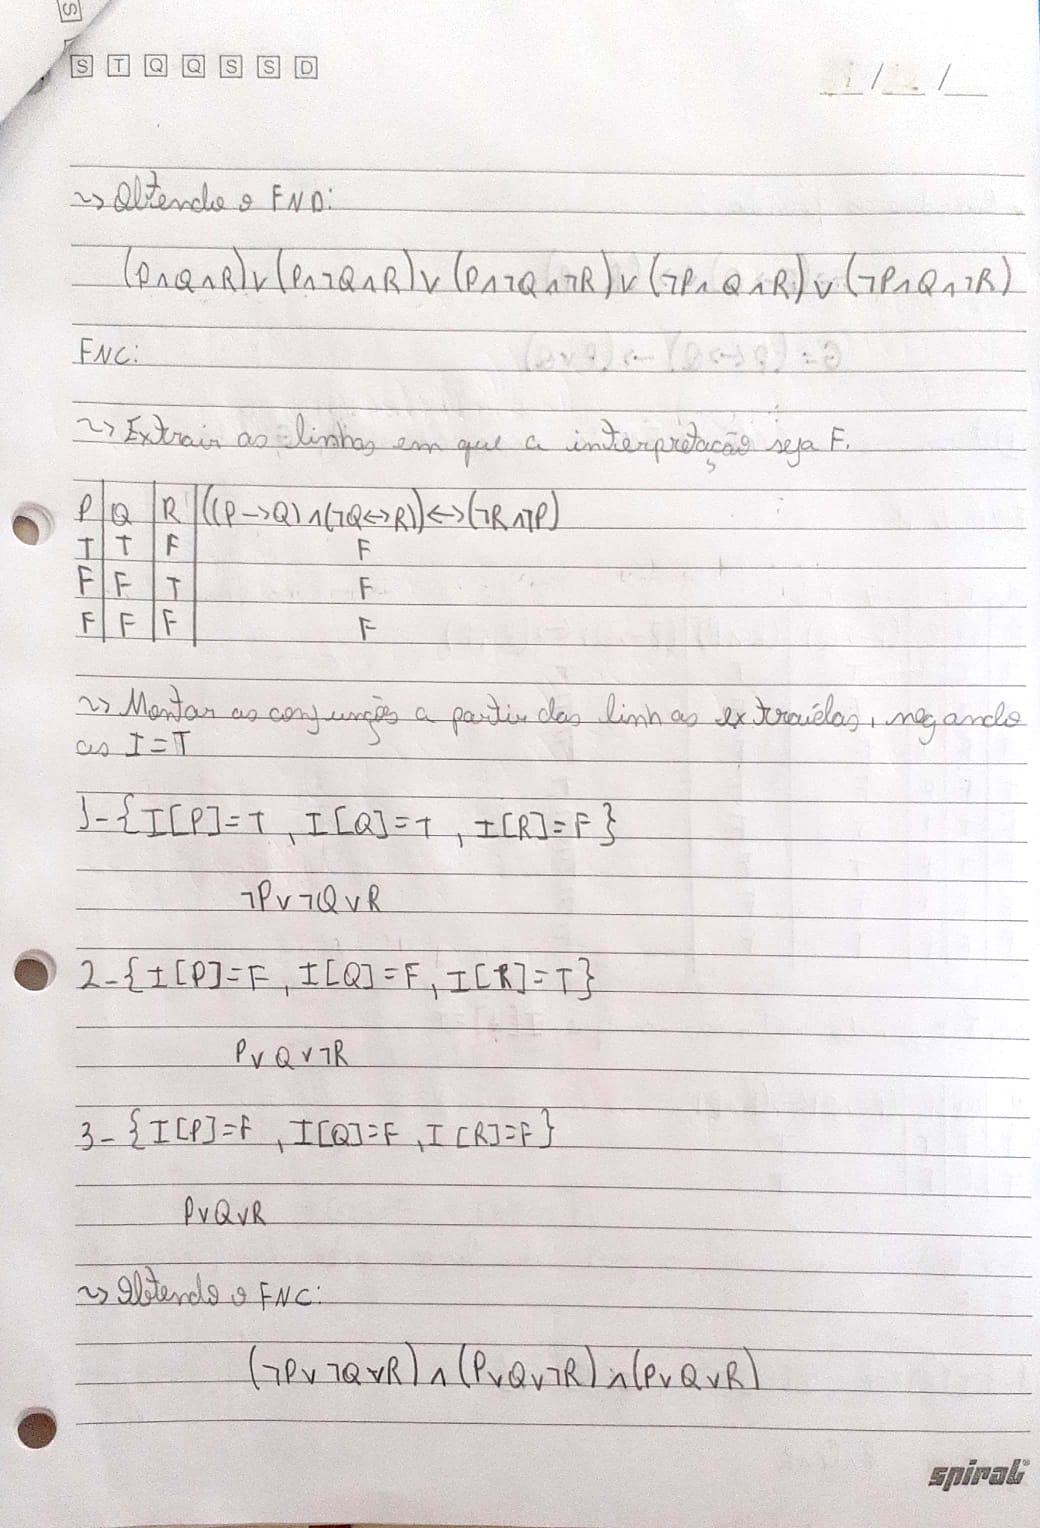 S
S T Q Q S S D
/ /
~> Obtendo o FND:
(P∧Q∧R)∨(P∧¬Q∧R)∨(P∧¬Q∧¬R)∨(¬P∧Q∧R)∨(¬P∧Q∧¬R)
FNC:
~> Extrair as linhas em que a interpretação seja F.
P | Q | R | ((P->Q)∧(¬Q<->R))<->(¬R∧¬P)
T | T | F | F
F | F | T | F
F | F | F | F
~> Montar as conjunções a partir das linhas extraídas, negando
as I=T
1-{I[P]=T, I[Q]=T, I[R]=F}
¬P∨¬Q∨R
2-{I[P]=F, I[Q]=F, I[R]=T}
P∨Q∨¬R
3-{I[P]=F, I[Q]=F, I[R]=F}
P∨Q∨R
~> Obtendo o FNC:
(¬P∨¬Q∨R)∧(P∨Q∨¬R)∧(P∨Q∨R)
spiral